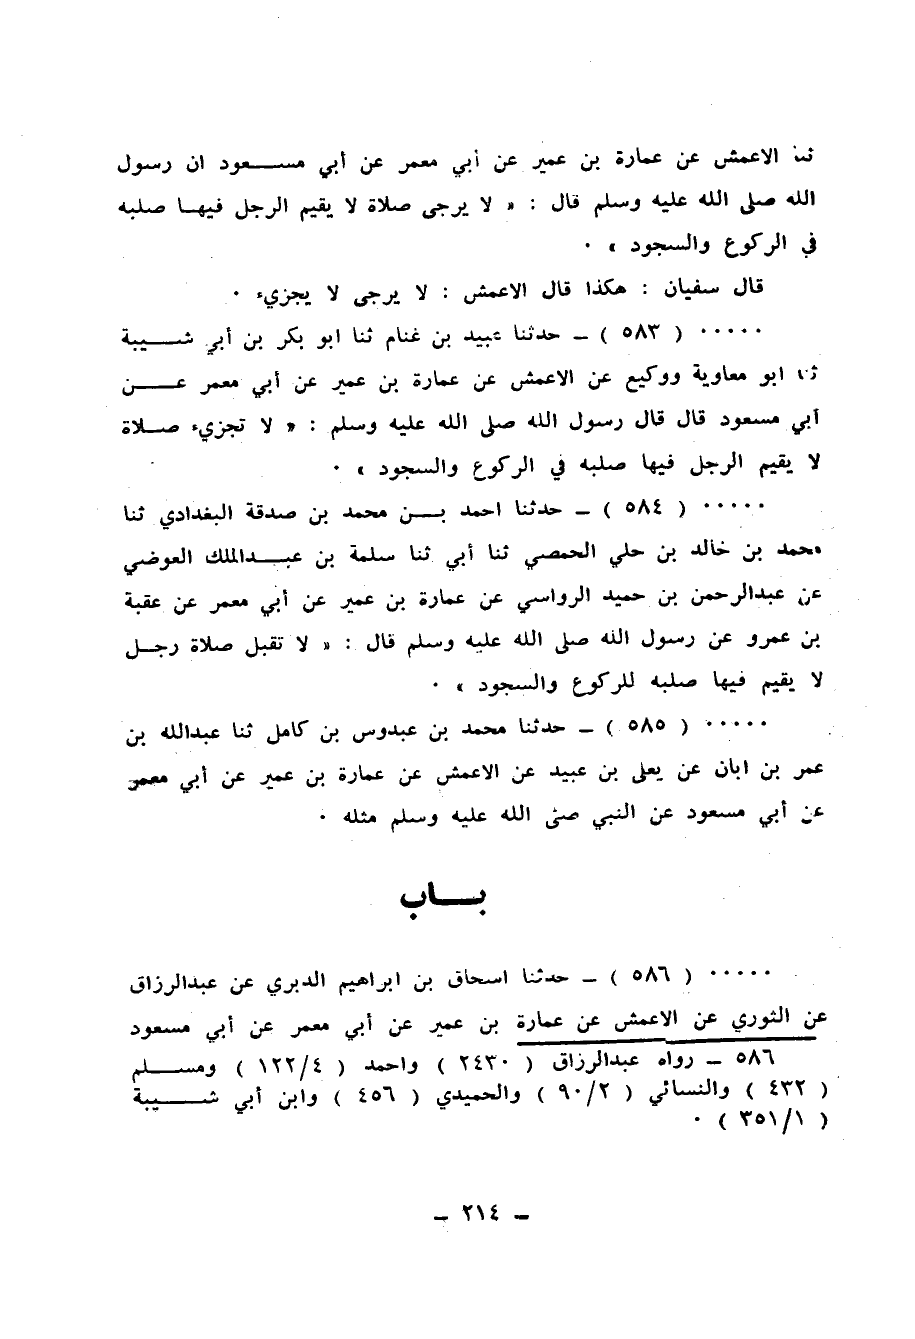 ثنا الاعمش عن عمارة بن عمير عن أبي معمر عن أبي مســعود ان رسول
الله صلى الله عليه وسلم قال : « لا يرجى صلاة لا يقيم الرجل فيهـا صلبه
في الركوع والسجود » ٠
قال سفيان : هكذا قال الاعمش : لا يرجى لا يجزيء ٠
٠٠٠٠٠ ( ٥٨٣ ) ــ حدثنا عبيد بن غنام ثنا ابو بكر بن أبي شــيبة
ثنا ابو معاوية ووكيع عن الاعمش عن عمارة بن عمير عن أبي معمر عـــن
أبي مسعود قال قال رسول الله صلى الله عليه وسلم : « لا تجزيء صـلاة
لا يقيم الرجل فيها صلبه في الركوع والسجود » ٠
٠٠٠٠٠ ( ٥٨٤ ) ــ حدثنا احمد بــن محمد بن صدقة البغدادي ثنا
محمد بن خالد بن حلي الحمصي ثنا أبي ثنا سلمة بن عبــدالملك العوضي
عن عبدالرحمن بن حميد الرواسي عن عمارة بن عمير عن أبي معمر عن عقبة
بن عمرو عن رسول الله صلى الله عليه وسلم قال : « لا تقبل صلاة رجـل
لا يقيم فيها صلبه للركوع والسجود » ٠
٠٠٠٠٠ ( ٥٨٥ ) ــ حدثنا محمد بن عبدوس بن كامل ثنا عبدالله بن
عمر بن ابان عن يعلى بن عبيد عن الاعمش عن عمارة بن عمير عن أبي معمر
عن أبي مسعود عن النبي صلى الله عليه وسلم مثله ٠
بـــاب
٠٠٠٠٠ ( ٥٨٦ ) ــ حدثنا اسحاق بن ابراهيم الدبري عن عبدالرزاق
عن الثوري عن الاعمش عن عمارة بن عمير عن أبي معمر عن أبي مسعود
٥٨٦ ــ رواه عبدالرزاق ( ٢٤٣٠ ) واحمد ( ١٢٢/٤ ) ومســلم
( ٤٣٢ ) والنسائي ( ٩٠/٢ ) والحميدي ( ٤٥٦ ) وابن أبي شــيبة
( ٣٥١/١ ) ٠
ــ ٢١٤ ــ